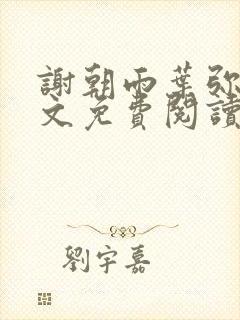 謝朝雨葉弥
文免費閱讀
劉宇嘉